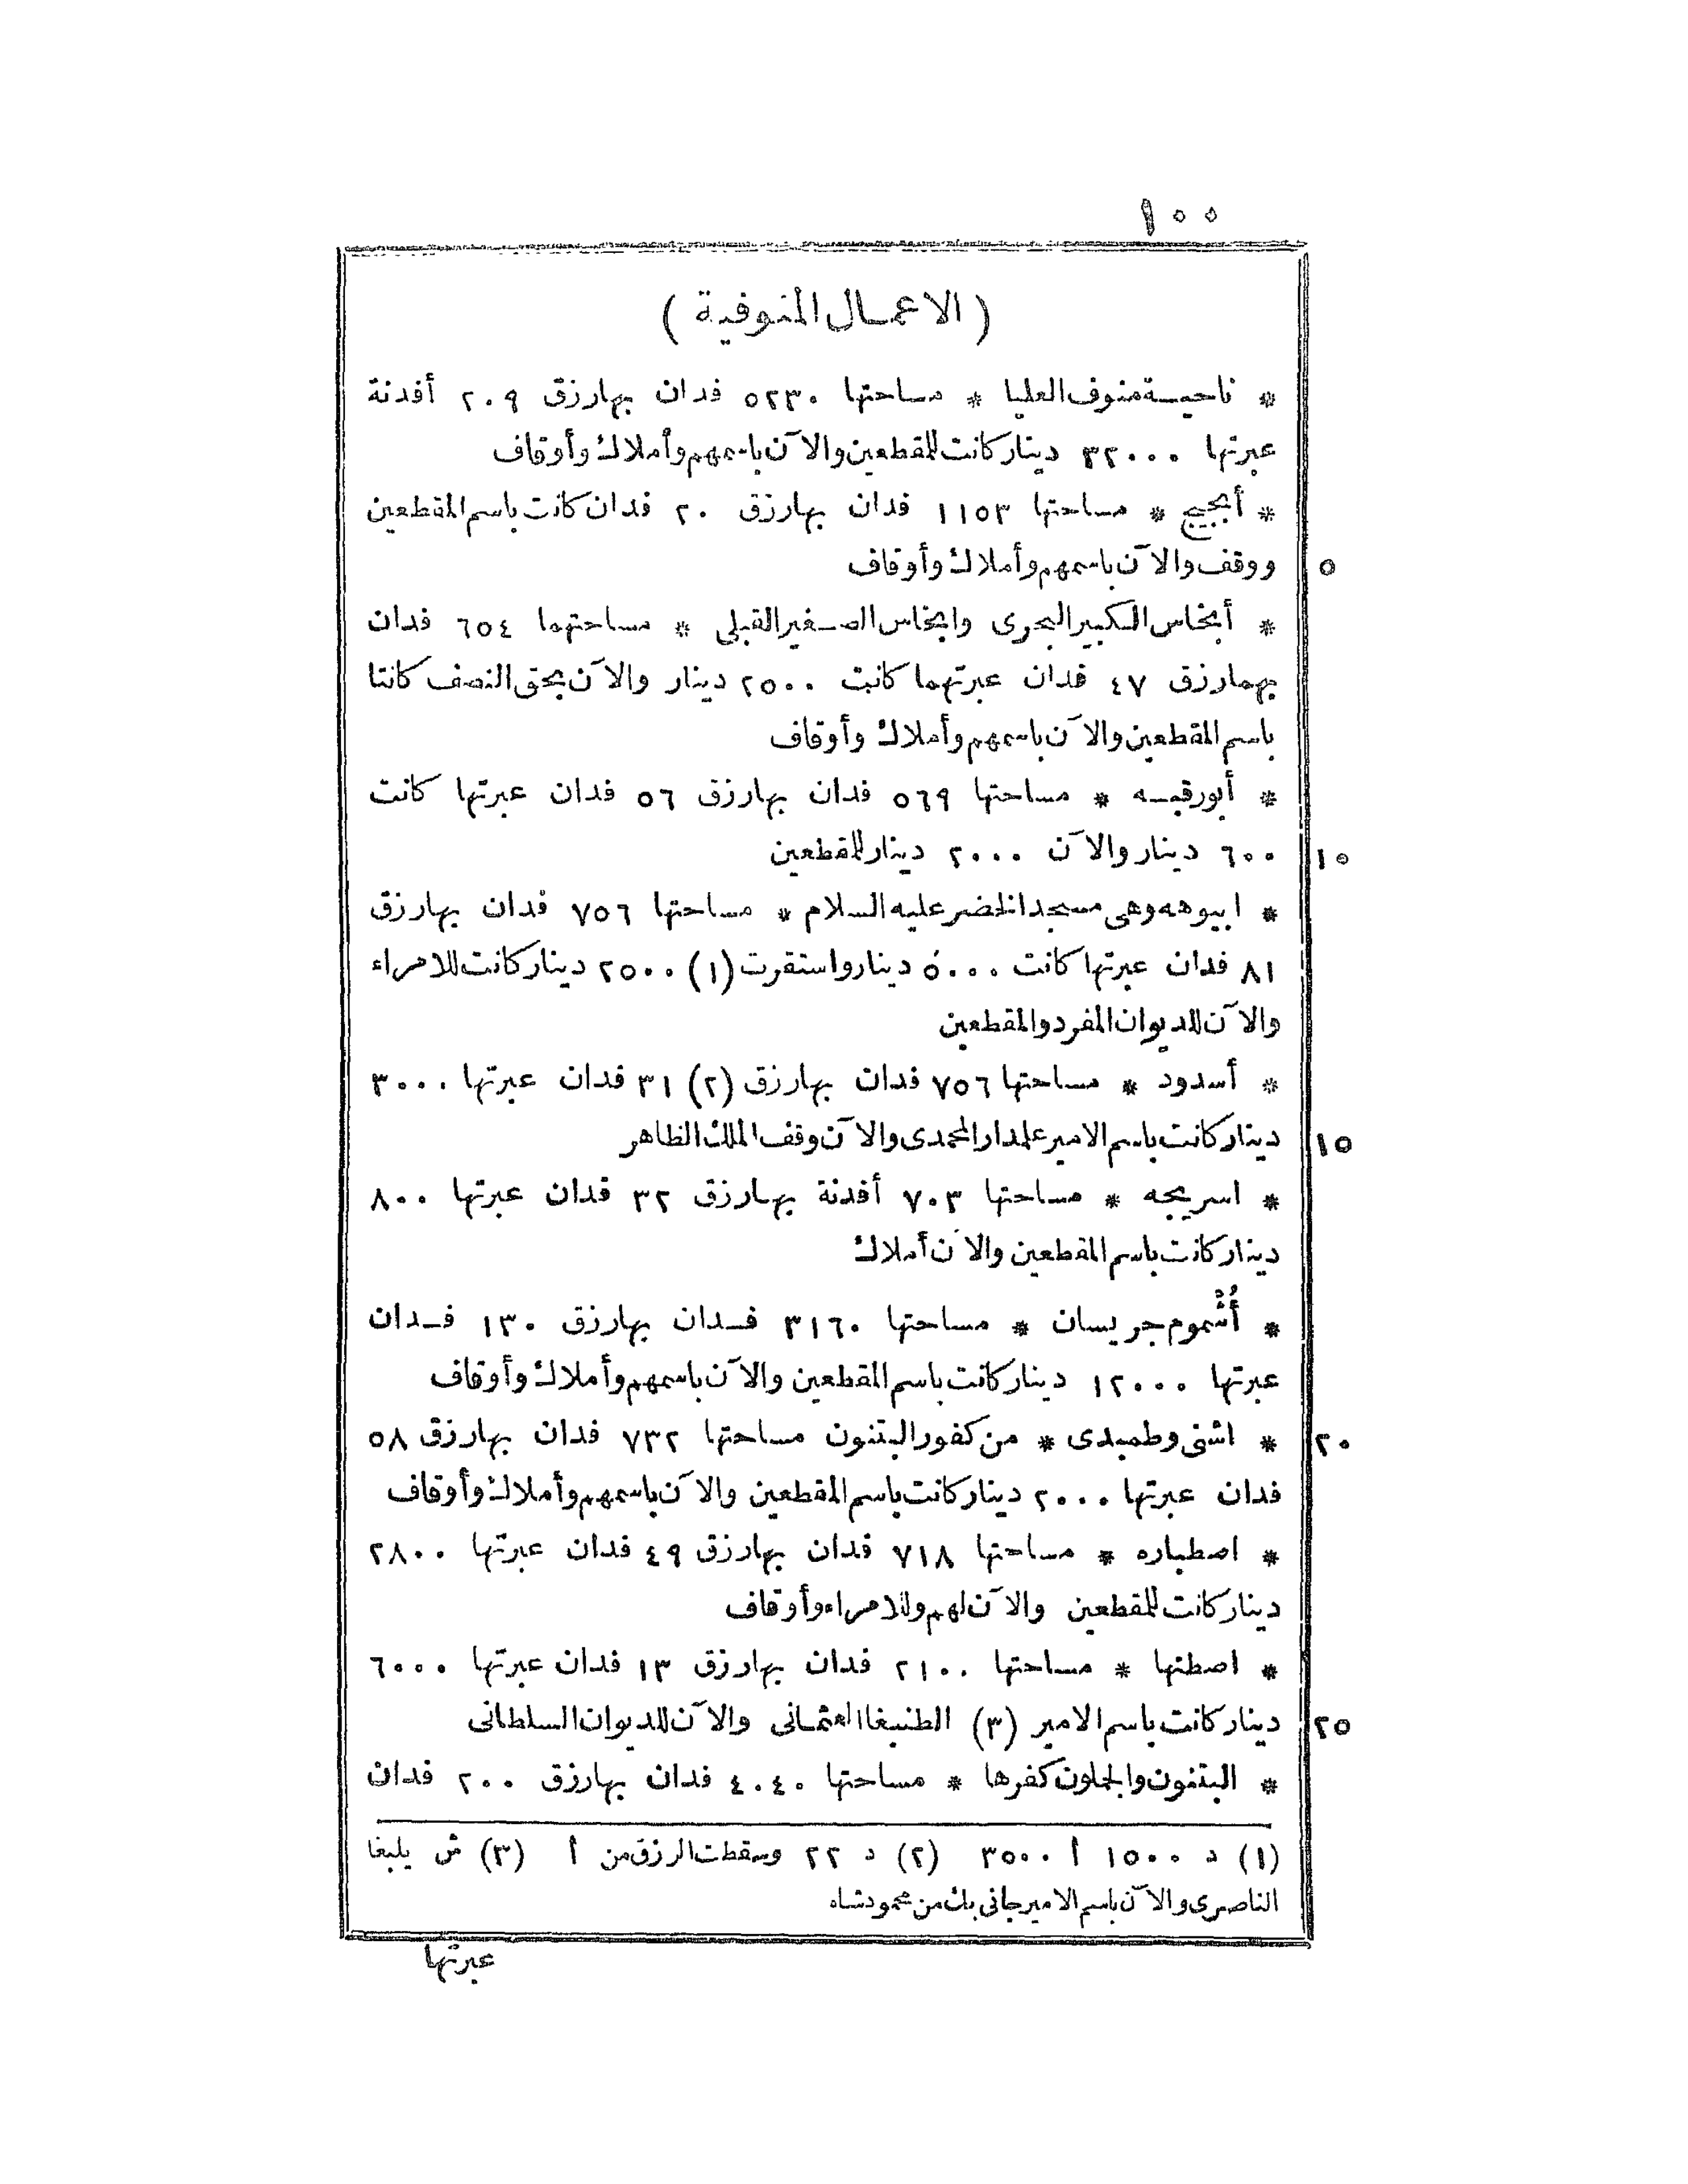 ١٠٠
( الاعمال المنوفية )
* ناحية منوف العليا * مساحتها ٥٢٣٠ فدان بها رزق ٢٠٩ أفدنة
عبرتها ٣٢٠٠٠ دينار كانت للمقطعين والآن باسمهم وأملاك وأوقاف
* أبجيج * مساحتها ١١٥٣ فدان بها رزق ٢٠ فدان كانت باسم المقطعين
ووقف والآن باسمهم وأملاك وأوقاف
٥
* أبخاس الكبير البحرى وابخاس الصغير القبلى * مساحتهما ٦٥٤ فدان
بهما رزق ٤٧ فدان عبرتهما كانت ٢٥٠٠ دينار والآن بحق النصف كانتا
باسم المقطعين والآن باسمهم وأملاك وأوقاف
* أبو رقبه * مساحتها ٥٦٩ فدان بها رزق ٥٦ فدان عبرتها كانت
٦٠٠ دينار والآن ٢٠٠٠ دينار للمقطعين
١٠
* ابيوهه وهى مسجد الخضر عليه السلام * مساحتها ٧٥٦ فدان بها رزق
٨١ فدان عبرتها كانت ٥٠٠٠ دينار واستقرت (١) ٢٥٠٠ دينار كانت للامراء
والآن للديوان المفرد والمقطعين
* أسدود * مساحتها ٧٥٦ فدان بها رزق (٢) ٣١ فدان عبرتها ٣٠٠٠
دينار كانت باسم الامير علمدار المحمدى والآن وقف الملك الظاهر
١٥
* اسريجه * مساحتها ٧٠٣ أفدنة بها رزق ٣٢ فدان عبرتها ٨٠٠
دينار كانت باسم المقطعين والآن أملاك
* أُشْموم جريسان * مساحتها ٣١٦٠ فدان بها رزق ١٣٠ فدان
عبرتها ١٢٠٠٠ دينار كانت باسم المقطعين والآن باسمهم وأملاك وأوقاف
* اشنى وطمبدى * من كفور البتنون مساحتها ٧٣٢ فدان بها رزق ٥٨
٢٠
فدان عبرتها ٢٠٠٠ دينار كانت باسم المقطعين والآن باسمهم وأملاك وأوقاف
* اصطباره * مساحتها ٧١٨ فدان بها رزق ٤٩ فدان عبرتها ٢٨٠٠
دينار كانت للمقطعين والآن لهم وللامراء وأوقاف
* اصطنها * مساحتها ٢١٠٠ فدان بها رزق ١٣ فدان عبرتها ٦٠٠٠
دينار كانت باسم الامير (٣) الطنبغا العثمانى والآن للديوان السلطانى
٢٥
* البتنون والجلون كفرها * مساحتها ٤٠٤٠ فدان بها رزق ٢٠٠ فدان
(١) د ١٥٠٠ أ ٣٥٠٠ (٢) د ٢٢ وسقطت الرزق من أ (٣) ش يلبغا
الناصرى والآن باسم الامير جانى بك من محمود شاه
عبرتها